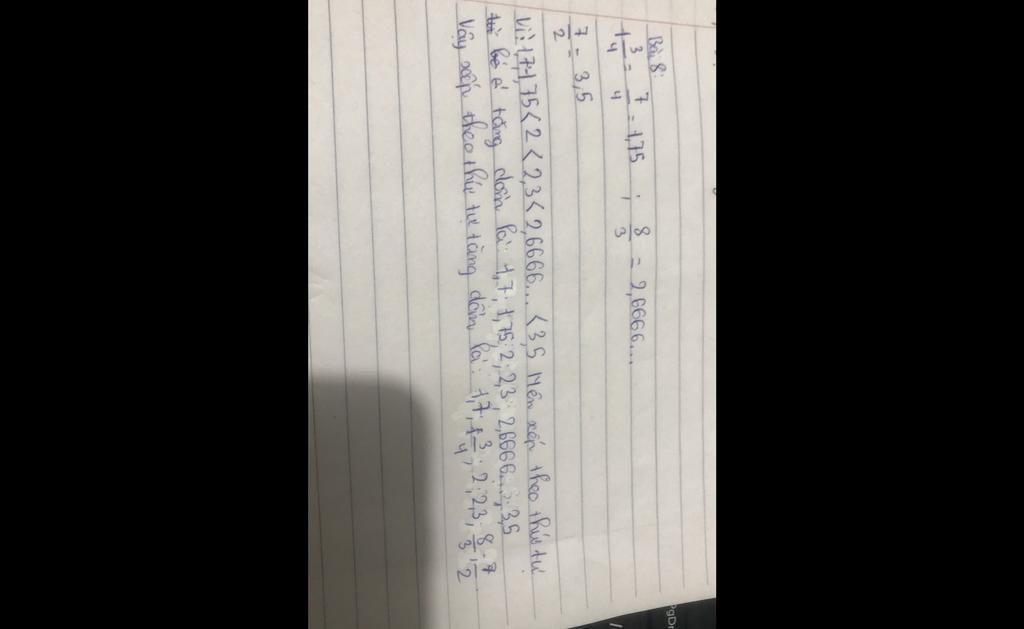 Bài 8:
1 3/4 = 7/4 = 1,75 ; 8/3 = 2,6666...
7/2 = 3,5
Vì: 1,7 < 1,75 < 2 < 2,3 < 2,6666... < 3,5 Nên xếp theo thứ tự
tăng dần là: 1,7; 1,75; 2; 2,3; 2,6666...; 3,5
Vậy xếp theo thứ tự tăng dần là: 1,7; 1 3/4; 2; 2,3; 8/3; 7/2
PgDn